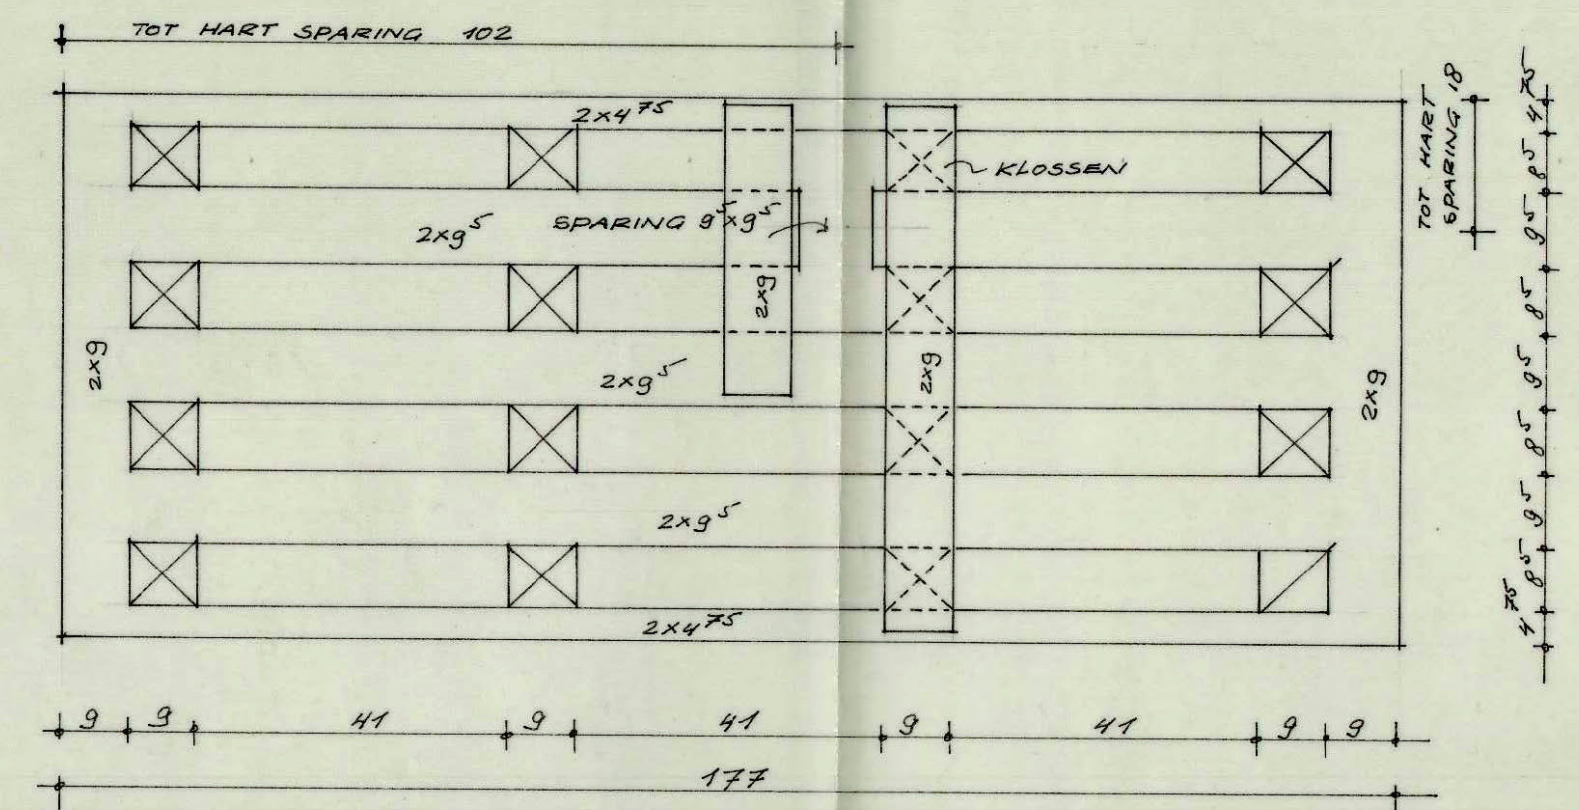 TOT HART SPARING 102
2x4⁷⁵
KLOSSEN
SPARING 9⁵x9⁵
2x9⁵
2x9
2x9
2x9⁵
2x9
2x9
2x9⁵
2x4⁷⁵
TOT HART
SPARING 18
4⁷⁵ 8⁵ 9⁵ 8⁵ 9⁵ 8⁵ 9⁵ 8⁵ 4⁷⁵
9 9 41 9 41 9 41 9 9
177